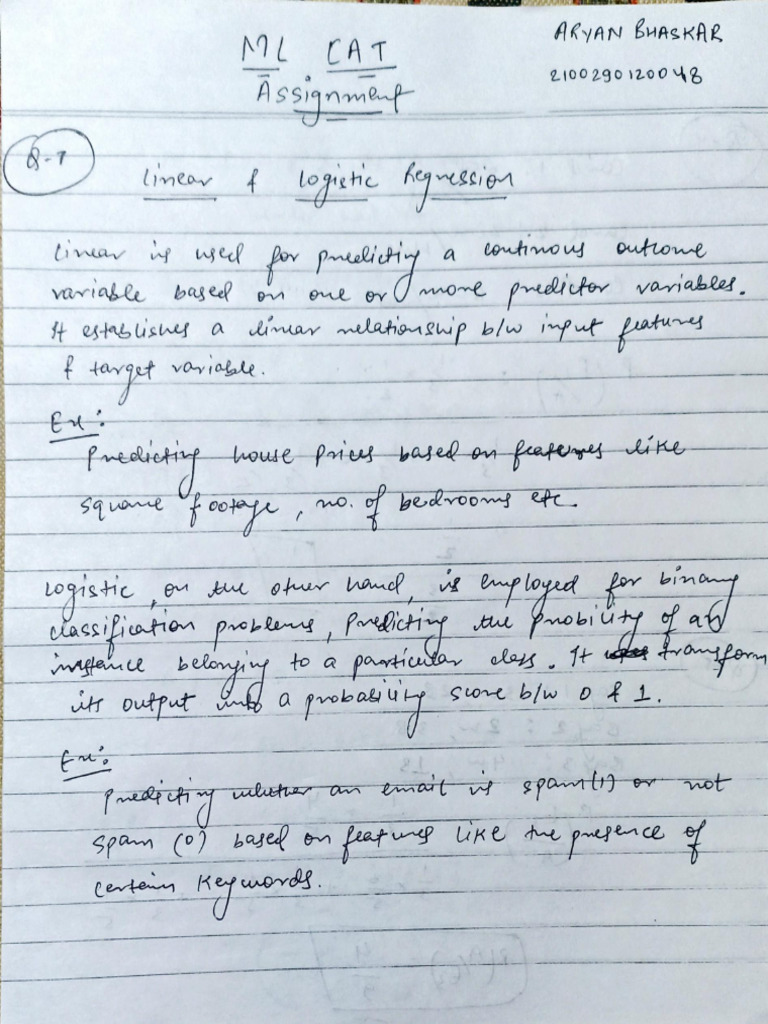 ML CAT
Assignment
ARYAN BHASKAR
2100290120048
Q-1
Linear & Logistic Regression
Linear is used for predicting a continous outcome
variable based on one or more predictor variables.
It establishes a linear relationship b/w input features
& target variable.
Ex:
Predicting house prices based on features like
square footage, no. of bedrooms etc.
Logistic, on the other hand, is employed for binary
classification problems, Predicting the probility of an
instance belonging to a particular class. It transform
its output into a probability score b/w 0 & 1.
Ex:
Predicting whether an email is spam(1) or not
spam (0) based on features like the presence of
certain keywords.